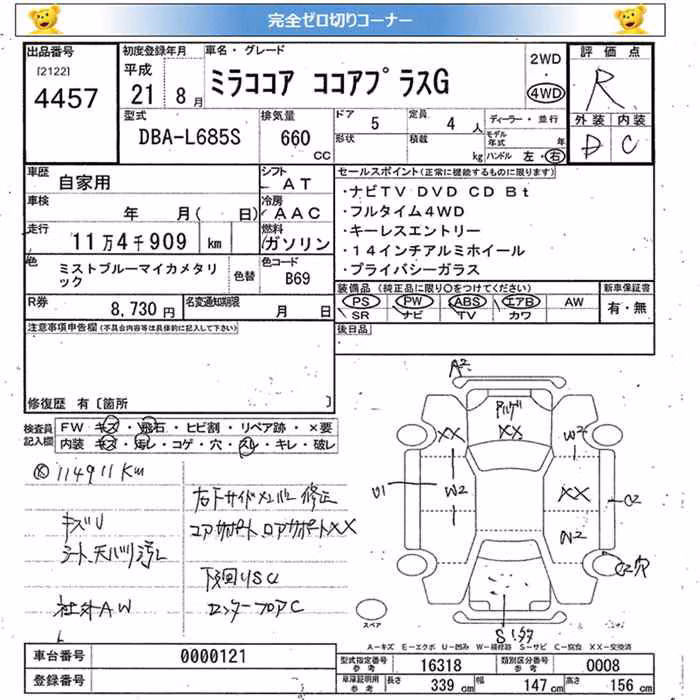 完全ゼロ切りコーナー
出品番号
[2122]
4457
初度登録年月
平成
21 8月
車名・グレード
ミラココア ココアプラスG
2WD
4WD
評価点
R
外装 内装
D C
型式
DBA-L685S
排気量
660
CC
ドア 5
形状
定員 4 人
積載 kg
ディーラー・並行
モデル年式 年
ハンドル 左・右
車歴
自家用
シフト
AT
車検
年 月( 日)
冷房
AAC
走行
11万4千909 km
燃料
ガソリン
色
ミストブルーマイカメタリック
色替
色コード
B69
R券
8,730円
名変通知期限
月 日
セールスポイント(正常に機能するものに限ります)
・ナビTV DVD CD Bt
・フルタイム4WD
・キーレスエントリー
・14インチアルミホイール
・プライバシーガラス
装備品(純正品に限り○をつけてください)
PS PW ABS エアB AW
SR ナビ TV カワ
新車保証書
有・無
後日品
注意事項申告欄(不具合内容等は具体的に記入して下さい)
修復歴 有〔箇所 〕
検査員記入欄
FW キズ・飛石・ヒビ割・リペア跡・×要
内装 キズ・汚レ・コゲ・穴・スレ・キレ・破レ
114911Km
キズU
シート、天バリ汚レ
社外AW
右下サイドメンバー修正
コアサポート、ロアサポートXX
下回りSU
センターフロアC
A2
XX
XX
W2
U1
W2
XX
W2
C2穴
スペア
A-キズ E-エクボ U-凹み W-補修跡 S-サビ C-腐食 XX-交換済
車台番号
0000121
登録番号
型式指定番号 参考
16318
類別区分番号 参考
0008
車庫証明用 参考
長さ 339 cm
幅 147 cm
高さ 156 cm